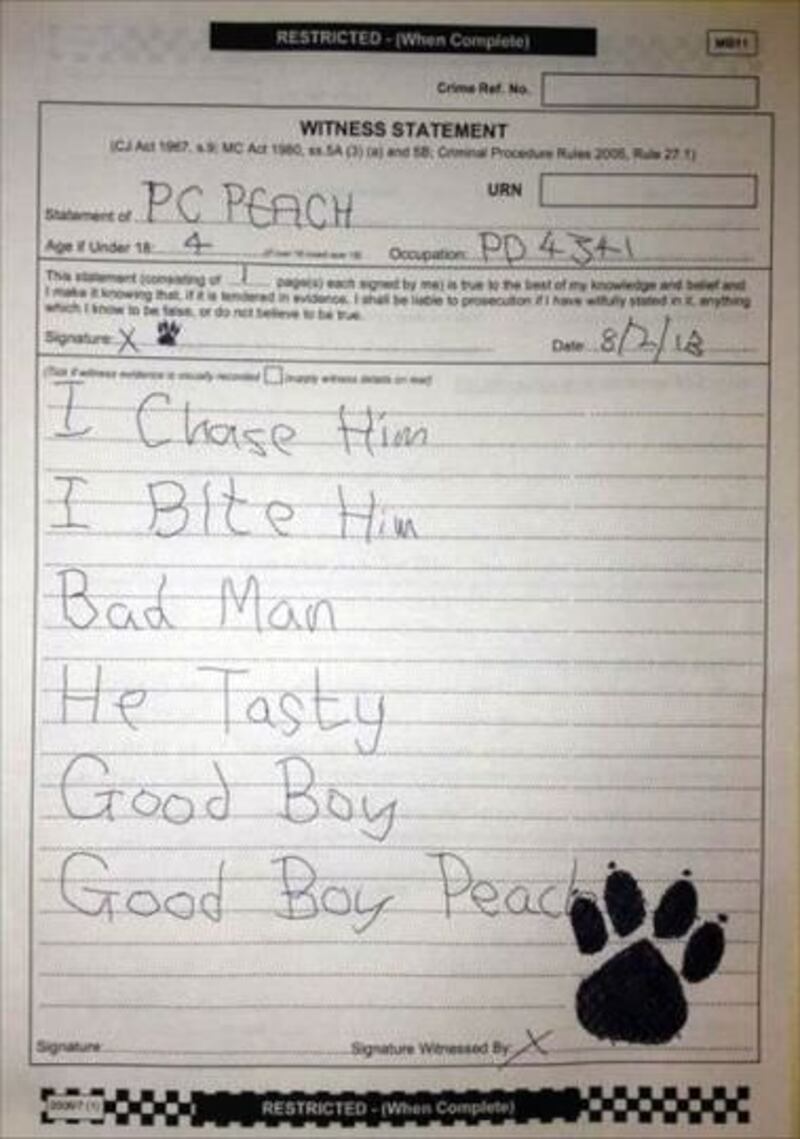 RESTRICTED - (When Complete)
MG11
Crime Ref. No.
WITNESS STATEMENT
(CJ Act 1967, s.9; MC Act 1980, ss.5A (3) (a) and 5B; Criminal Procedure Rules 2005, Rule 27.1)
URN
Statement of PC PEACH
Age if Under 18: 4 Occupation: PD 4341
This statement (consisting of 1 page(s) each signed by me) is true to the best of my knowledge and belief and
I make it knowing that, if it is tendered in evidence, I shall be liable to prosecution if I have wilfully stated in it, anything
which I know to be false, or do not believe to be true.
Signature: X Date 8/2/13
(Tick if witness evidence is visually recorded (supply witness details on rear)
I Chase Him
I BIte Him
Bad Man
He Tasty
Good Boy
Good Boy Peach
Signature: Signature Witnessed By: X
RESTRICTED - (When Complete)